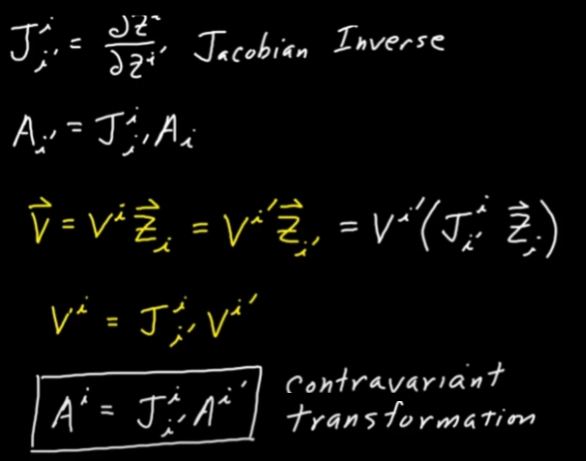 J^i_{i'} = ∂Z^i/∂Z^{i'} Jacobian Inverse
A_{i'} = J^i_{i'} A_i
V⃗ = V^i Z⃗_i = V^{i'} Z⃗_{i'} = V^{i'} (J^i_{i'} Z⃗_i)
V^i = J^i_{i'} V^{i'}
A^i = J^i_{i'} A^{i'} contravariant transformation